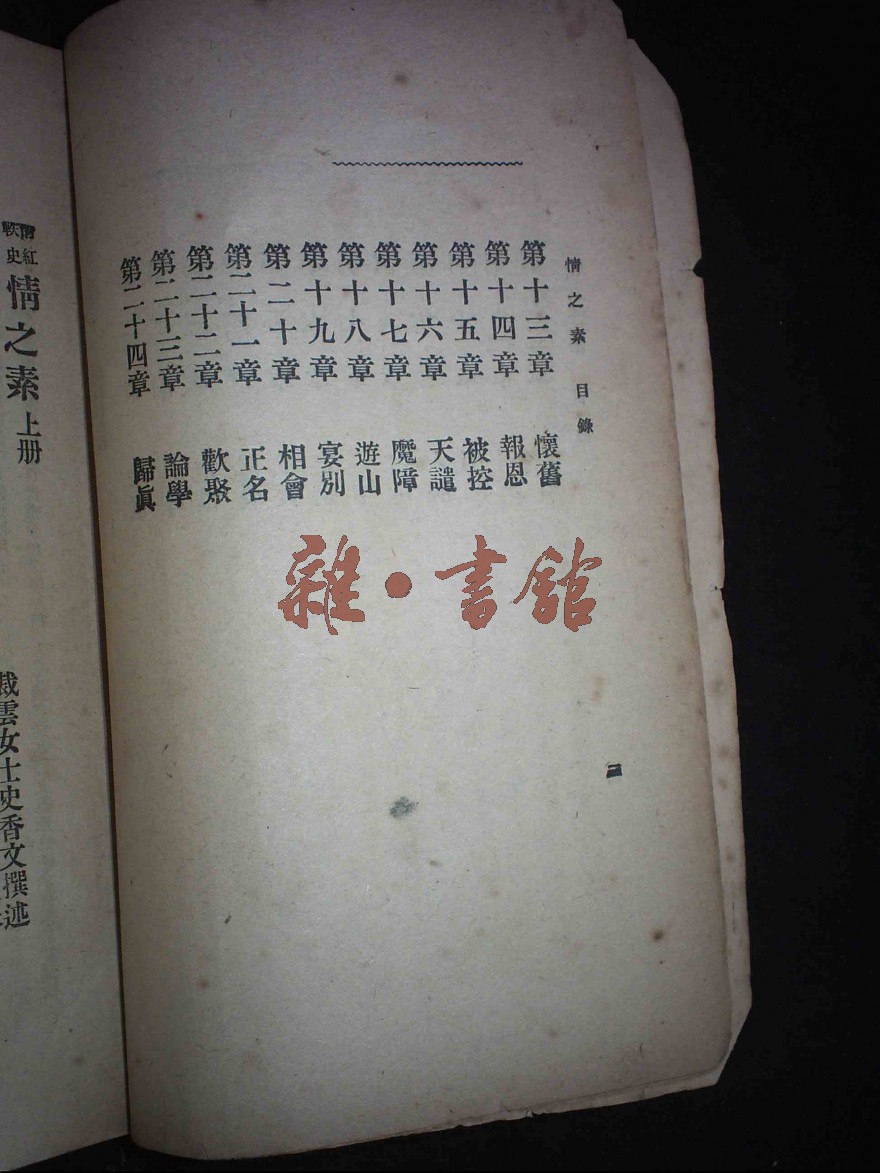 情之素 目錄
二
第十三章 懷舊
第十四章 報恩
第十五章 被控
第十六章 天譴
第十七章 魔障
第十八章 遊山
第十九章 宴別
第二十章 相會
第二十一章 正名
第二十二章 歡聚
第二十三章 論學
第二十四章 歸眞
情紅
軼史
情之素 上册
裁雲女士史香文撰述
雜·書館